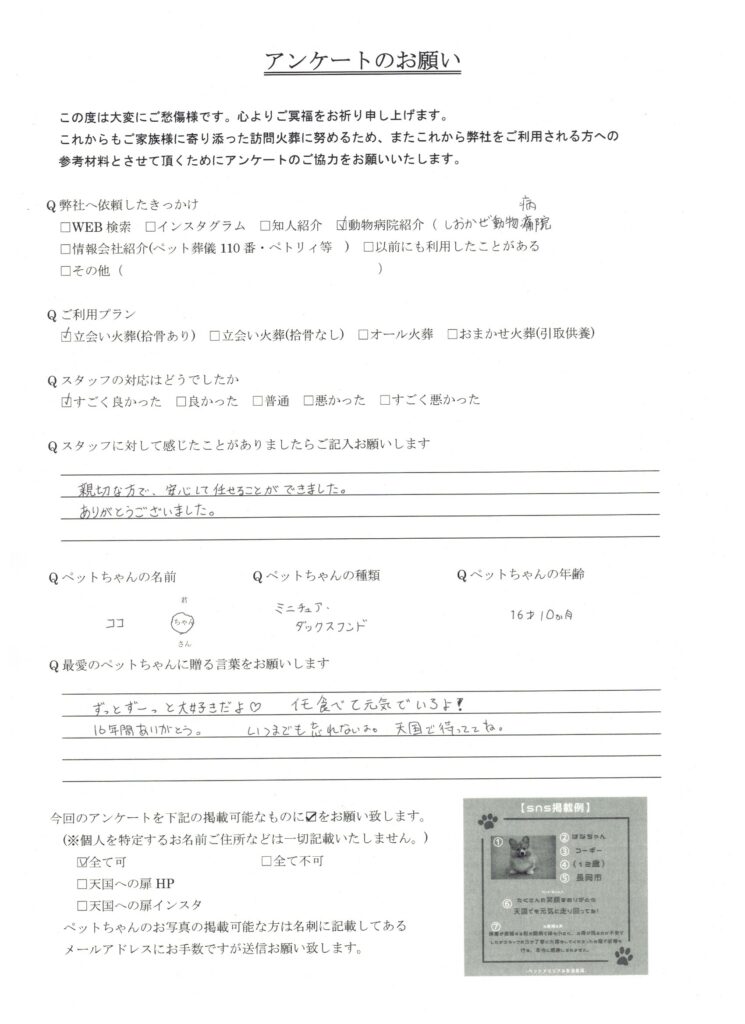 アンケートのお願い
この度は大変にご愁傷様です。心よりご冥福をお祈り申し上げます。
これからもご家族様に寄り添った訪問火葬に努めるため、またこれから弊社をご利用される方への
参考材料とさせて頂くためにアンケートのご協力をお願いいたします。
Q 弊社へ依頼したきっかけ
病
□WEB 検索 □インスタグラム □知人紹介 ☑動物病院紹介 ( しおかぜ動物病院
□情報会社紹介(ペット葬儀 110 番・ペトリィ等 ) □以前にも利用したことがある
□その他 ( )
Q ご利用プラン
☑立会い火葬(拾骨あり) □立会い火葬(拾骨なし) □オール火葬 □おまかせ火葬(引取供養)
Q スタッフの対応はどうでしたか
☑すごく良かった □良かった □普通 □悪かった □すごく悪かった
Q スタッフに対して感じたことがありましたらご記入お願いします
親切な方で、安心して任せることができました。
ありがとうございました。
Q ペットちゃんの名前 Q ペットちゃんの種類 Q ペットちゃんの年齢
君
ココ ちゃん
さん
ミニチュア・
ダックスフンド
16才10ヵ月
Q 最愛のペットちゃんに贈る言葉をお願いします
ずっとずーっと大好きだよ♡ イモ食べて元気でいろよ!
16年間ありがとう。 いつまでも忘れないよ。 天国で待っててね。
今回のアンケートを下記の掲載可能なものに☑をお願い致します。
(※個人を特定するお名前ご住所などは一切記載いたしません。)
☑全て可 □全て不可
□天国への扉 HP
□天国への扉インスタ
ペットちゃんのお写真の掲載可能な方は名刺に記載してある
メールアドレスにお手数ですが送信お願い致します。
【sns掲載例】
① ② はなちゃん
③ コーギー
④ (12歳)
⑤ 長岡市
⑥ たくさんの笑顔をありがとう
天国でも元気に走り回ってね!
⑦